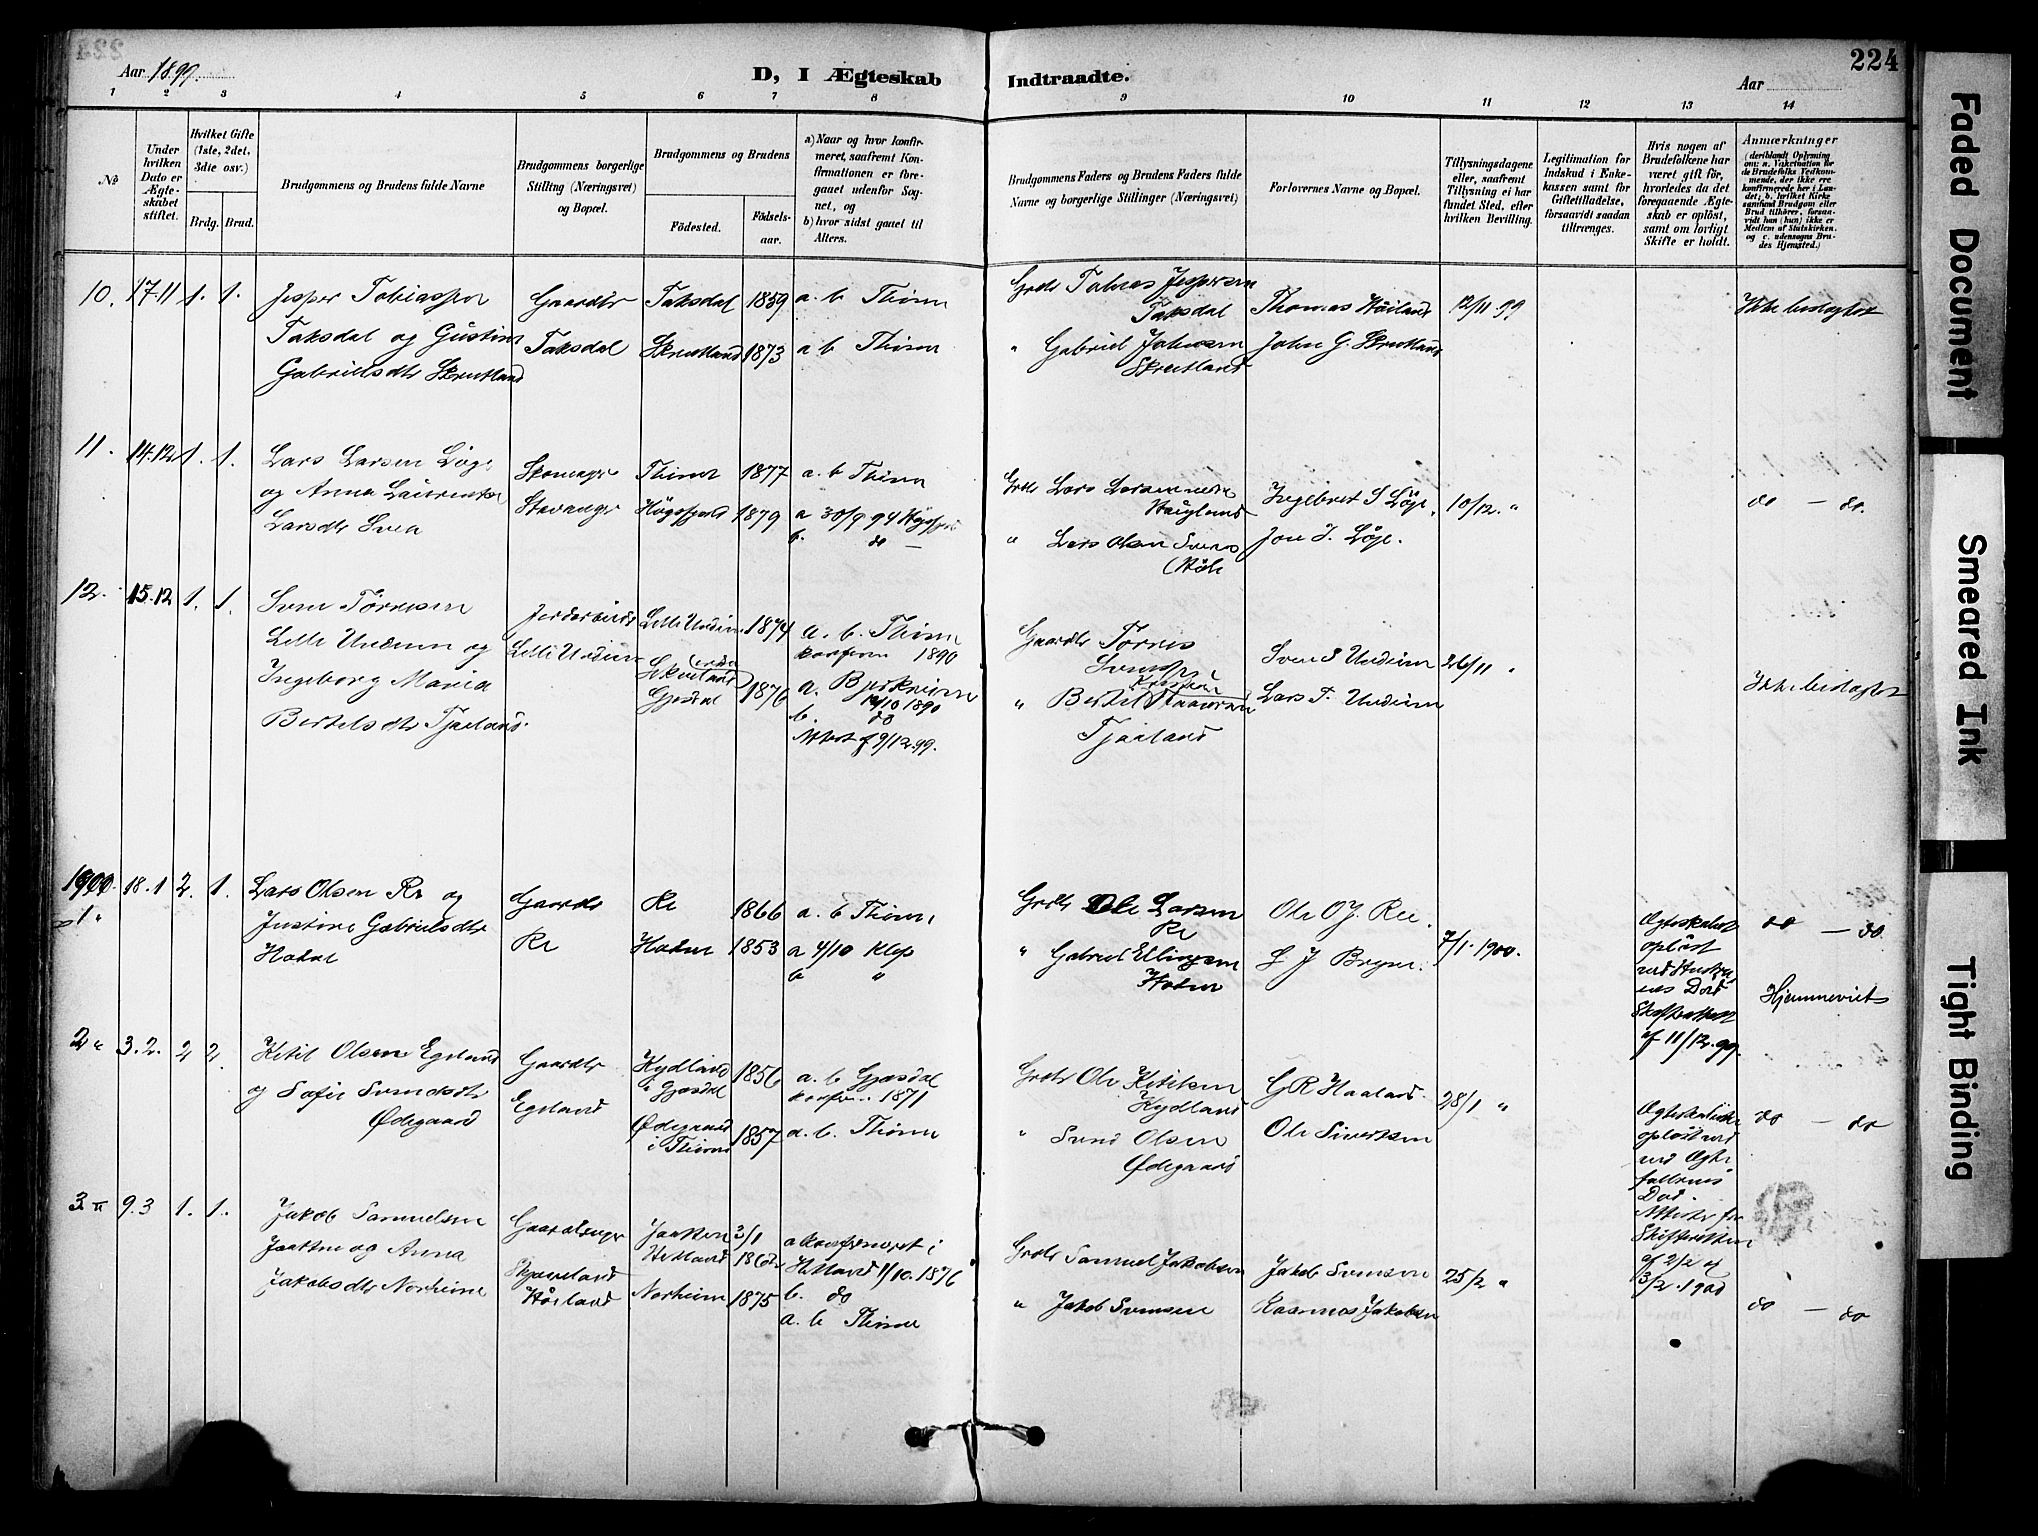 Aar 1899.
D, I Ægteskab
Indtraadte.
Aar
224
1 2 3 4 5 6 7 8 9 10 11 12 13 14
No
Under hvilken Dato er Ægteskabet stiftet.
Hvilket Gifte (1ste, 2det, 3die osv.)
Brdg. Brud.
Brudgommens og Brudens fulde Navne
Brudgommens borgerlige Stilling (Næringsvei) og Bopæl.
Brudgommens og Brudens
Fødested.
Fødselsaar.
a) Naar og hvor konfirmeret, saafremt Konfirmationen er foregaaet udenfor Sognet, og
b) hvor sidst gaaet til Alters.
Brudgommens Faders og Brudens Faders fulde Navne og borgerlige Stillinger (Næringsvei)
Forlovernes Navne og Bopæl.
Tillysningsdagene eller, saafremt Tillysning ei har fundet Sted, efter hvilken Bevilling.
Legitimation for Indskud i Enkekassen samt for Giftetilladelse, forsaavidt saadan tiltrænges.
Hvis nogen af Brudefolkene har været gift før, hvorledes da det foregaaende Ægteskab er opløst, samt om lovligt Skifte er holdt.
Anmærkninger (deriblandt Oplysning om: a. Vaksination for de Brudefolks Vedkommende, der ikke ere konfirmerede her i Landet; b. hvilket Kirkesamfund Brudgom eller Brud tilhører, forsaavidt han (hun) ikke er Medlem af Statskirken, og c. udensogns Brudes Hjemsted.)
10. 17.11 1. 1. Jesper Tobiassen
Taksdal og Gustine
Gabrielsdtr Skrutland
Gaardbr
Taksdal
Taksdal 1859 a. b Thime
Skrutland 1873 a b Thime
Grdbr Tobias Jespersen
Taksdal
" Gabriel Johnsen
Skrutland
Thomas Høiland
John G. Skrutland
12/11 99
Ikke beslægtet
11. 14.12 1. 1. Lars Larsen Løge
og Anna Laurentse
Larsdtr Svea
Skomager
Stavanger
Thime 1877 a. b Thime
Høgsfjord 1879 a 30/9 94 Høgsfjord
b. do —
Grdbr Lars Larsen
Hauglund
" Lars Olsen Svena
Ingebret S Løge.
Jon J. Løge.
10/12. "
do — do.
12. 15.12 1. 1. Sven Tørresen
Lille Undeim og
Ingeborg Maria
Bertelsdtr Tjaeland.
Jordarbeider
Lille Undeim
Lille Undeim 1874 a. b. Thime
konfirm 1890
Skurland
Gjesdal 1876 a. Bjerkreim
12/10 1890
b. do
Attest f 9/12.99.
Gaardbr Tørres
Svensen
" Bertel
Tjaaland
Sven S Undeim
Lars T. Undeim
26/11 "
Ikke beslægtet
1900. 18.1 2. 1. Lars Olsen Re og
1 "
Justine Gabrielsdtr
Hadne
Gaardbr
Re
Re 1866 a. b Thime
Hadne 1853 a 4/10 Klep
b "
Grdbr Ole Larsen
Re
" Gabriel Ellingsen
Hodne
Ole O J. Ree.
L J Bryne.
7/1. 1900.
Ægteskabet
opløst
ved Hustruens
Død
Skifteattest
af 11/12.99.
do — do.
Hjemmeviet
2 " 3.2. 2 2. Ketil Olsen Egeland
og Sofie Svendsdtr
Ødegaard
Gaardbr
Egeland
Kydland
i Gjesdal 1856 a. b Gjesdal
konfirm. 1871
Ødegaard
i Thime 1857 a. b. Thime
Grdbr Ole Ketilsen
Kydland
" Svend Olsen
Ødegaard
G R Haaland
Ole Sivertsen
28/1 "
Ægteskabene
opløst ved
ved Ægtefællernes
Død.
Attester fra
Skifteretten
af 2/2 og
3/2.1900
do — do
3 " 9.3 1. 1. Jakob Samuelsen
Jaatten og Anna
Jakobsdtr Norheim
Gaardbruger
Skjæveland
Høiland
Jaatten
Hetland 3/1 1862 a konfirmeret i
Hetland 1/10.1876
b. do
Norheim 1875 a. b Thime
Grdbr Samuel Jakobsen
" Jakob Svensen
Jakob Svensen
Rasmus Jakobsen
25/2 "
do — do
Faded Document
Smeared Ink
Tight Binding